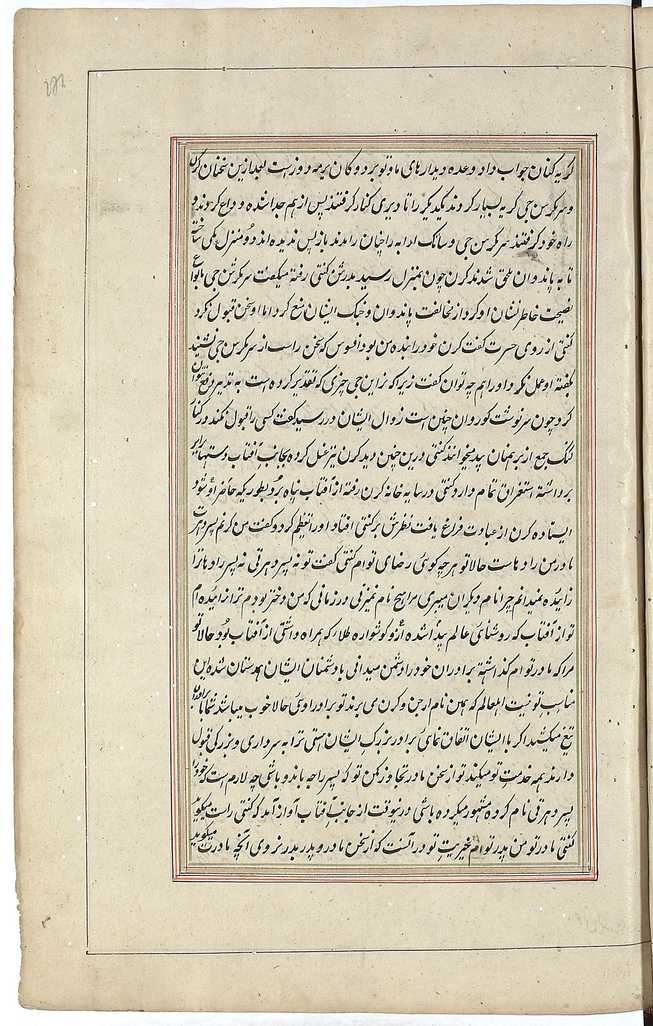 گریه کنان جواب داد وعده دیدارهای ما و تو بر دو کان برمه دوزست بعد ازین سخنان کرن
و سرکرسن جی گریه بسیار کردند یکدیگر را تا دیری کنار گرفتند پس از هم جدا شده وداع کردند و
راه خود گرفتند سرکرسن جی و سانک ارابه را چنان راندند باز پس ندیده اند دو منزل یکی ساخته
تا به پاندوان ملحق شدند کرن چون بمنزل رسید بدرشن کنتی رفته میگفت سرکرشن جی بانواع
نصیحت خاطرنشان او کرد از مخالفت پاندوان و جنگ ایشان منع کرد اما او سخن قبول نکرد
کنتی از روی حسرت گفت کرن خود زانیده من بود افسوس که سخن راست از سرکرسن جی نشنید
بگفته او عمل نکرد اورا هم چه توان گفت زیرا که نراین جی چیزی که تقدیر کرده است به تدبیر دفع نتوان
کرد چون سرنوشت کوروان چنین است زوال ایشان در رسید گفت کسی را قبول نکنند در کنار
گنگ جمع از برهمنان بید میخوانند کنتی درین حین دید کرن نیز غسل کرده بجانب آفتاب دستها برابر
برداشته استغراق تمام دارد کنتی در سایه خانه کرن رفته از آفتاب پناه برد بطوریکه حاضر او شود
ایستاده کرن از عبادت فراغ یافت نظرش بر کنتی افتاد اورا تعظیم کرد و گفت من کرنم پسر دهرت
مادر من رادهاست حالا تو هر چه گوئی رضای توام کنتی گفت تو نه پسر دهرتی نه پسر رادها ترا
زائیده نمیدانم چرا نام دیگران میبری مرا هیچ نام نمیبری در زمانی که من دختر بودم ترا زائیده ام
تو از آفتاب که روشنای عالم پیدا شده ازو گوشواره طلا که همراه داشتی از آفتاب بود حالا تو
مرا که مادر توام گذاشته برادران خود را دشمن میدانی با دشمنان ایشان همدستان شده این
مناسب تو نیست اهل عالم که همین نام ارجن و کرن می برند تو برادر اوئی حالا خوب میباشد شما با
تیغ میکشید اگر با ایشان اتفاق نمای برادر بزرگ ایشان هستی ترا به سرداری و بزرگی قبول
دارند همه خدمت تو میکنند تو از سخن مادر تجاوز مکن تو که پسر راجه پاند و باشی چه لازم است که خود را
پسر دهرتی نام کرده مشهور میکرده باشی درینوقت از جانب آفتاب آواز آمد که کنتی راست میگوید
کنتی مادر تو من پدر توام خیریت تو در آنست که از سخن مادر و پدر بدر نروی آنچه مادرت میگوید